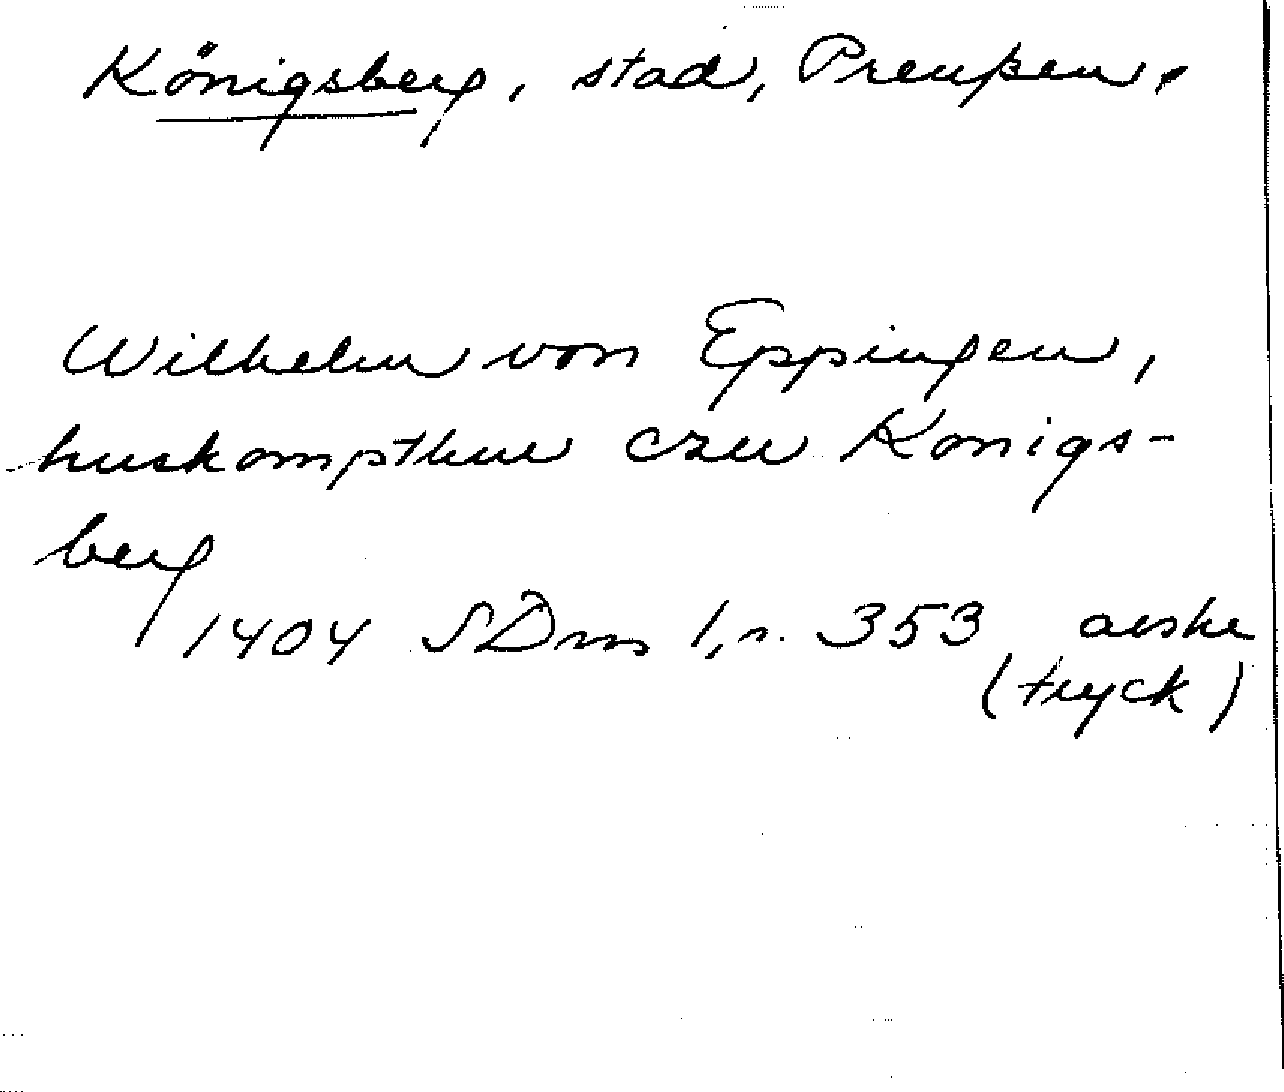 Königsberg, stad, Preußen.
Wilhelm von Eppingen,
huskompthur czu Konigs-
berg
1404 SDns 1, n. 353 avskr
(tryck)